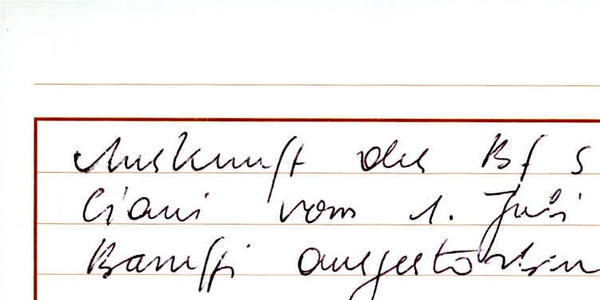 Auskunft des Bf S
Ciani vom 1. Juli
Banffi ausgestorben